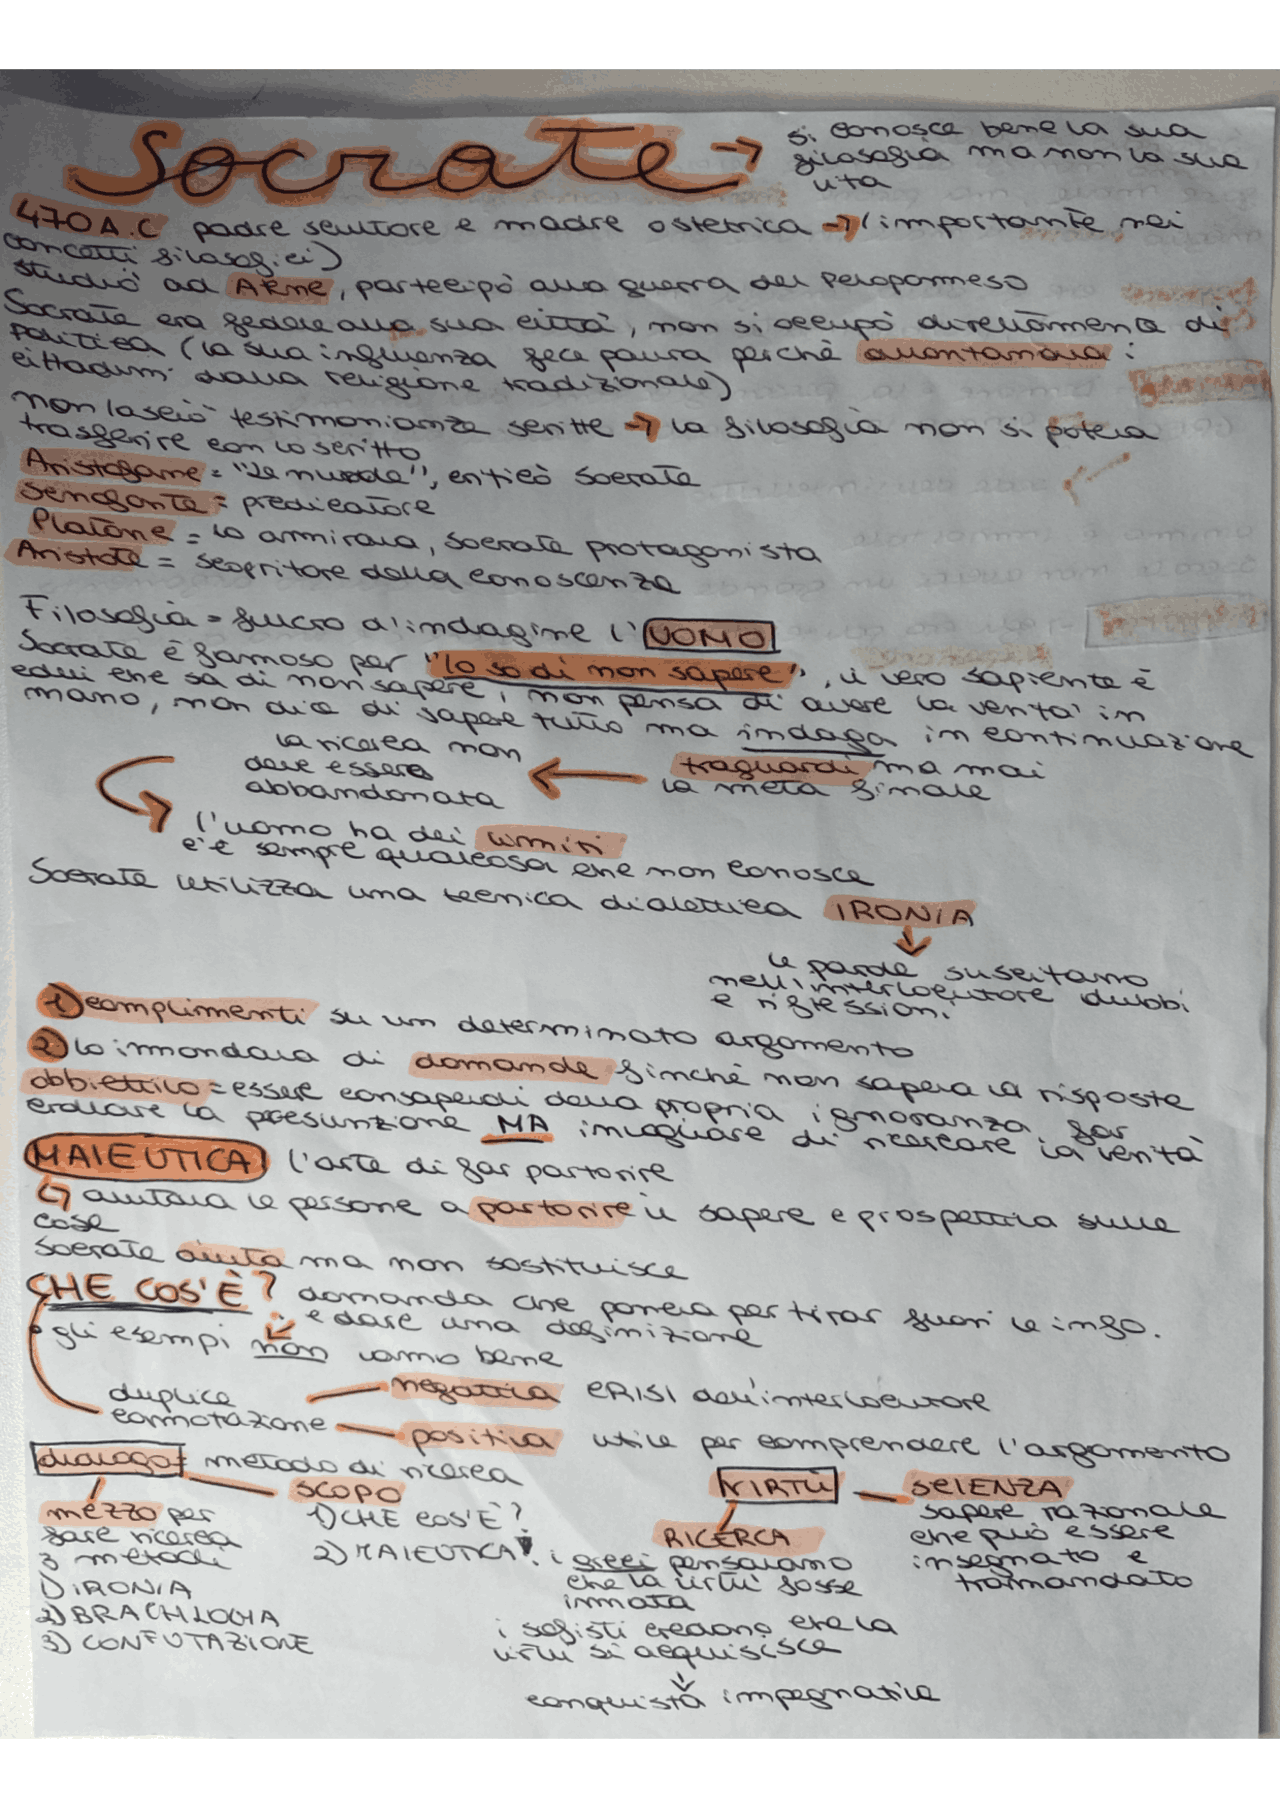 Socrate → si conosce bene la sua
filosofia ma non la sua
vita
470 A.C padre scultore e madre ostetrica → (importante nei
concetti filosofici)
studiò ad Atene, partecipò alla guerra del Peloponneso
Socrate era fedele alla sua città, non si occupò direttamente di
politica (la sua influenza fece paura perchè allontanava i
cittadini dalla religione tradizionale)
non lasciò testimonianze scritte → la filosofia non si poteva
trasferire con lo scritto
Aristofane = "Le nuvole", criticò Socrate
Senofonte = predicatore
Platone = lo ammirava, Socrate protagonista
Aristote = scopritore della conoscenza
Filosofia = fulcro d'indagine l'UOMO
Socrate è famoso per "Io so di non sapere", il vero sapiente è
colui che sa di non sapere, non pensa di avere la verità in
mano, non dice di sapere tutto ma indaga in continuazione
la ricerca non
deve essere
abbandonata
← traguardi ma mai
la meta finale
l'uomo ha dei limiti
c'è sempre qualcosa che non conosce
Socrate utilizza una tecnica dialettica IRONIA
le parole suscitano
nell'interlocutore dubbi
e riflessioni
1) complimenti su un determinato argomento
2) lo inondava di domande finchè non sapeva la risposte
obbiettivo = essere consapevoli della propria ignoranza, far
crollare la presunzione MA invogliare di ricercare la verità
MAIEUTICA l'arte di far partorire
↪ aiutava le persone a partorire il sapere e prospettiva sulle
cose
Socrate aiuta ma non sostituisce
CHE COS'È? domanda che poneva per tirar fuori le info.
e dare una definizione
• gli esempi non vanno bene
duplice
connotazione
negativa CRISI dell'interlocutore
positiva utile per comprendere l'argomento
dialogo = metodo di ricerca
mezzo per
fare ricerca
3 metodi
1) IRONIA
2) BRACHLOGIA
3) CONFUTAZIONE
SCOPO
1) CHE COS'È?
2) MAIEUTICA
VIRTÙ — SCIENZA
sapere razionale
che può essere
insegnato e
tramandato
RICERCA
i greci pensavano
che la virtù fosse
innata
i sofisti credono che la
virtù si acquisisce
↓
conquista impegnativa